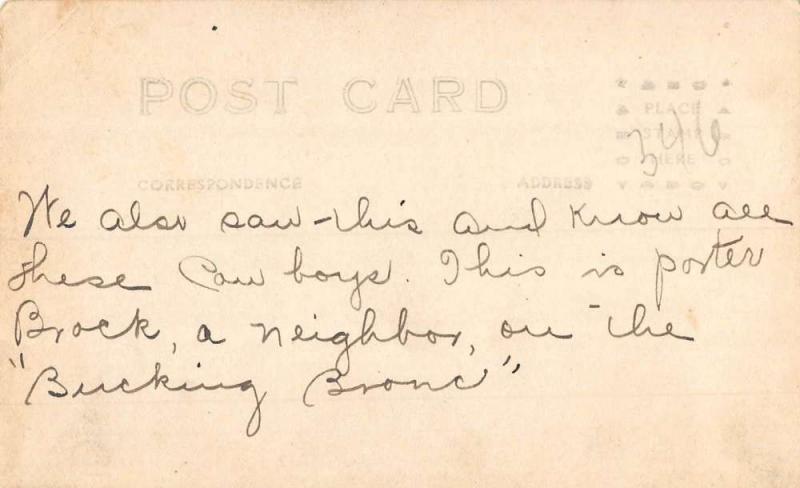 POST CARD
PLACE
STAMP
HERE
346
CORRESPONDENCE
ADDRESS
We also saw this and know all
these Cow boys. This is porter
Brock, a neighbor, on the
"Bucking Bronc"